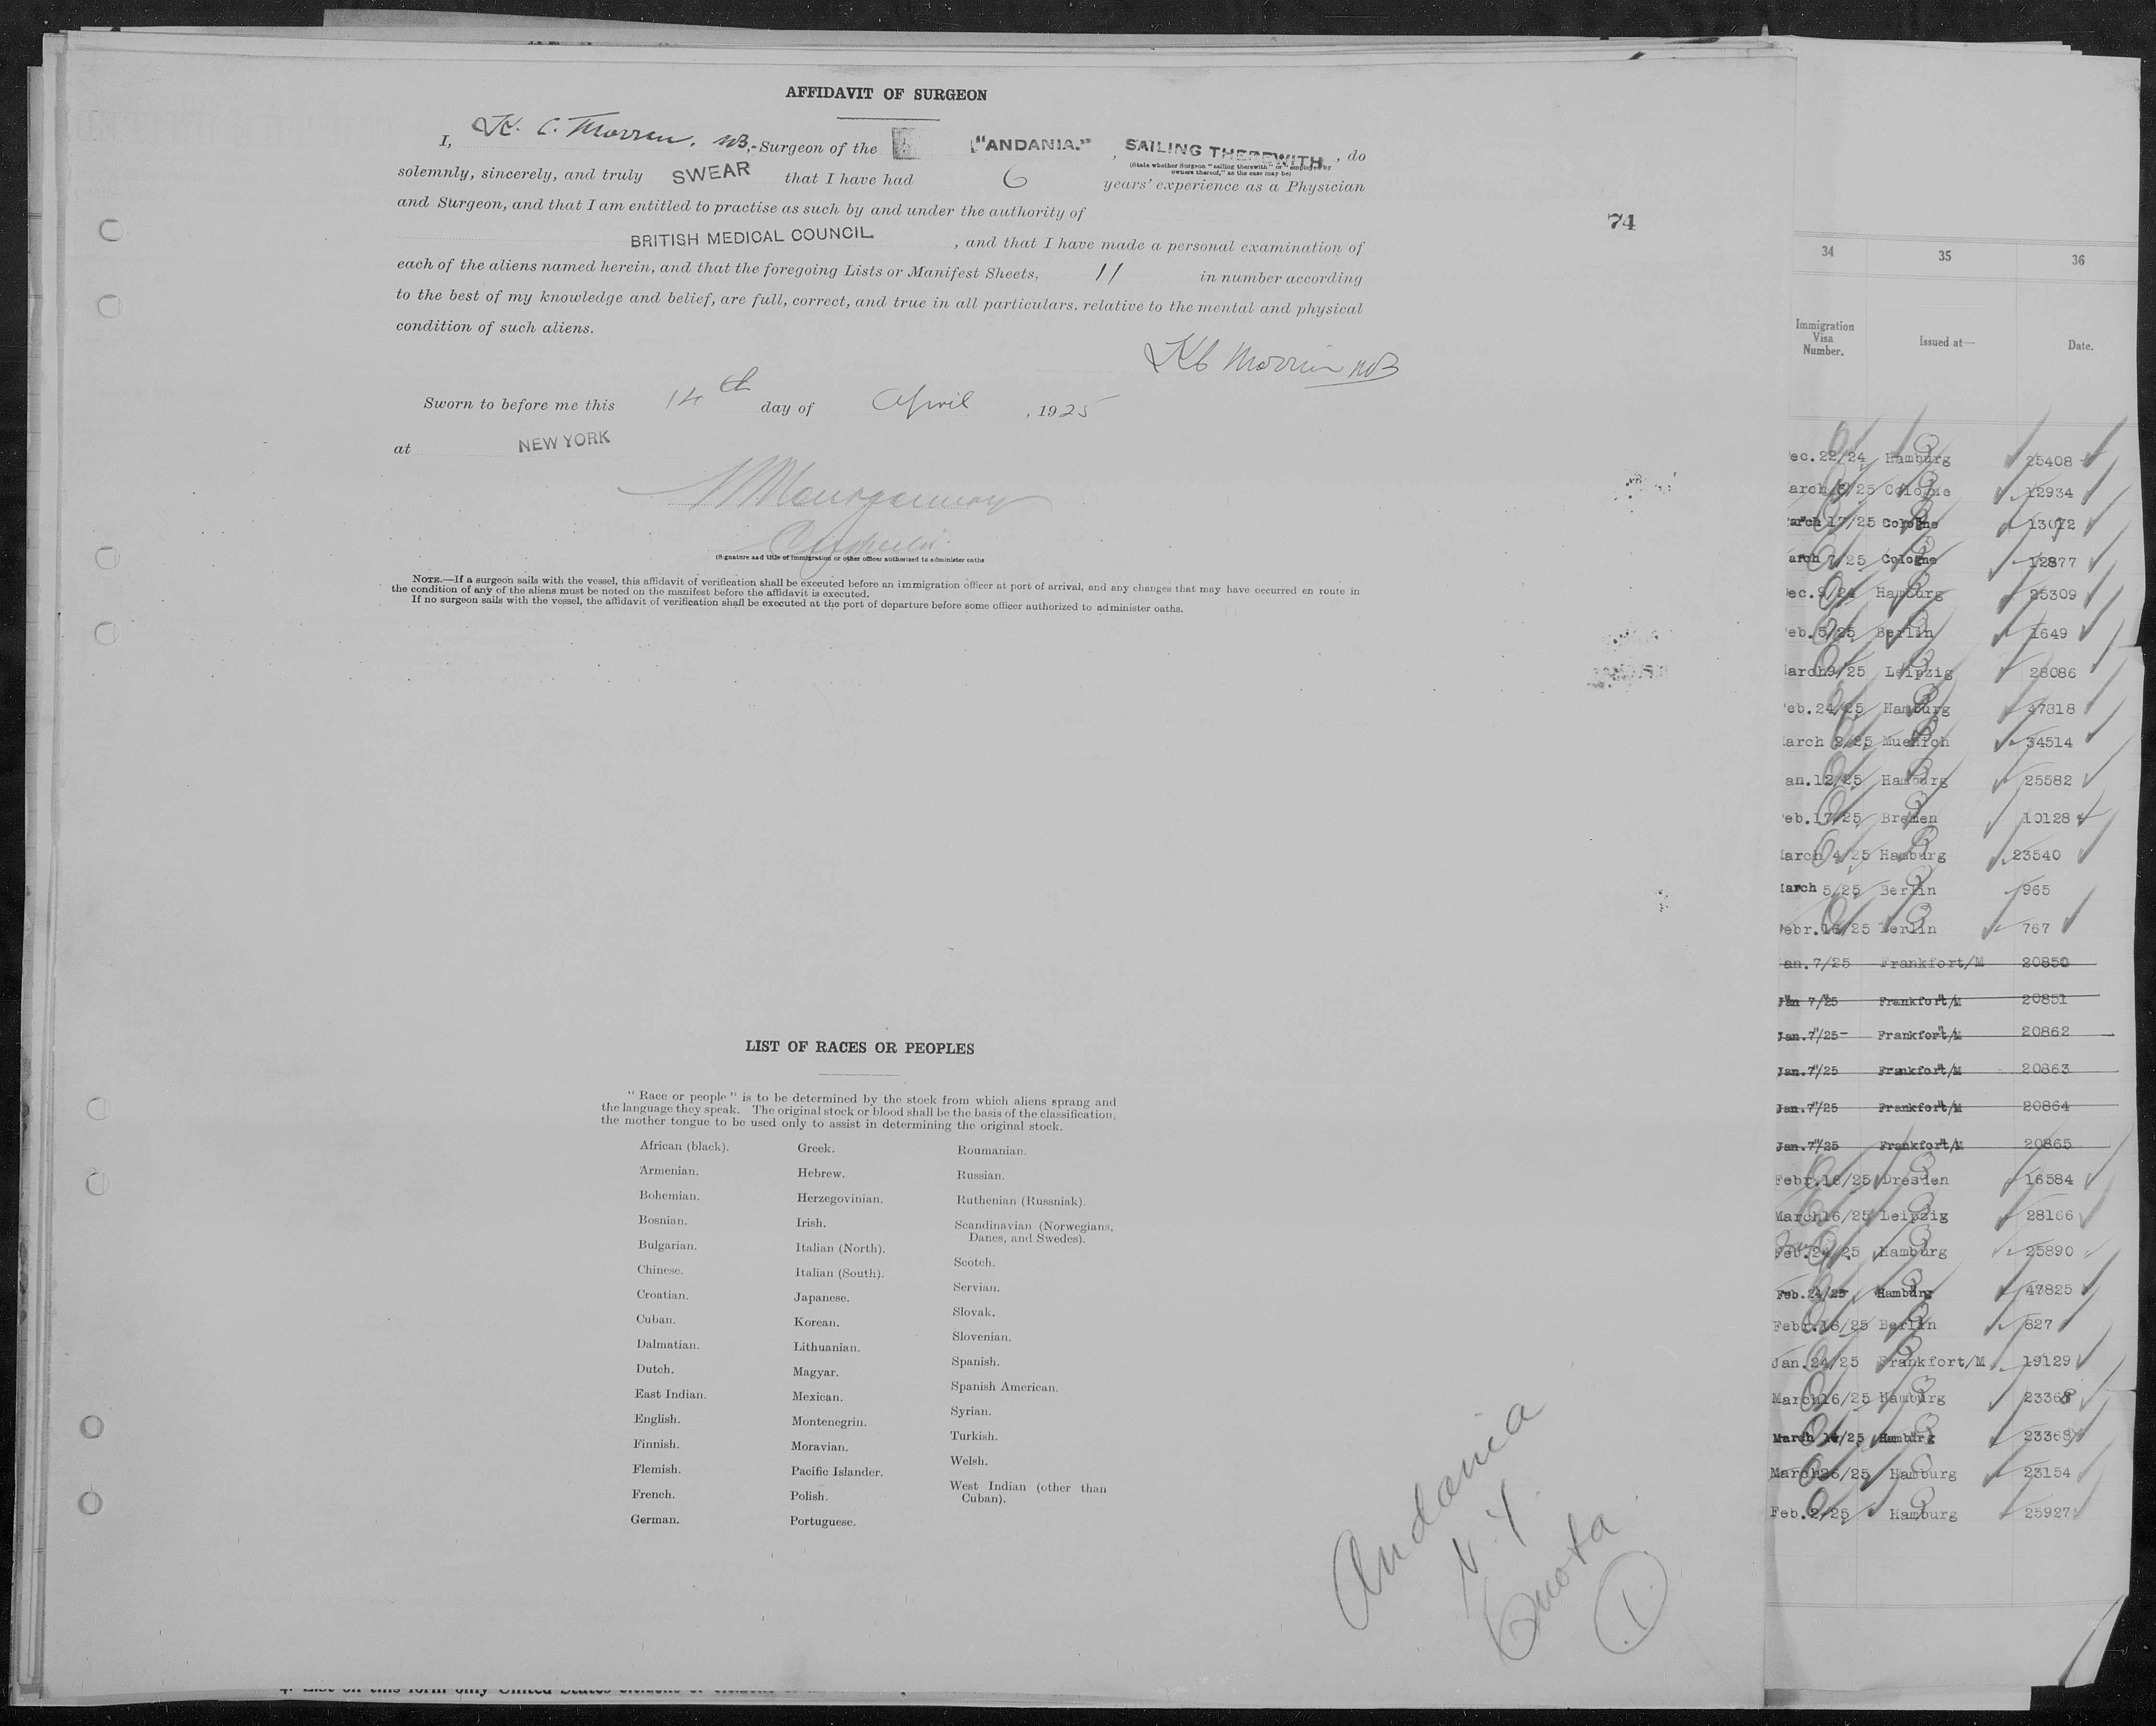 AFFIDAVIT OF SURGEON
I, K. C. Morren, MB, Surgeon of the "ANDANIA." , SAILING THEREWITH , do
(State whether Surgeon "sailing therewith" or "employed by
owners thereof," as the case may be)
solemnly, sincerely, and truly SWEAR that I have had 6 years' experience as a Physician
and Surgeon, and that I am entitled to practise as such by and under the authority of
BRITISH MEDICAL COUNCIL , and that I have made a personal examination of
each of the aliens named herein, and that the foregoing Lists or Manifest Sheets, 11 in number according
to the best of my knowledge and belief, are full, correct, and true in all particulars, relative to the mental and physical
condition of such aliens.
Sworn to before me this 14th day of April , 1925
at NEW YORK
(Signature and title of immigration or other officer authorized to administer oaths
NOTE.—If a surgeon sails with the vessel, this affidavit of verification shall be executed before an immigration officer at port of arrival, and any changes that may have occurred en route in
the condition of any of the aliens must be noted on the manifest before the affidavit is executed.
If no surgeon sails with the vessel, the affidavit of verification shall be executed at the port of departure before some officer authorized to administer oaths.
74
LIST OF RACES OR PEOPLES
"Race or people" is to be determined by the stock from which aliens sprang and
the language they speak. The original stock or blood shall be the basis of the classification,
the mother tongue to be used only to assist in determining the original stock.
African (black).
Armenian.
Bohemian.
Bosnian.
Bulgarian.
Chinese.
Croatian.
Cuban.
Dalmatian.
Dutch.
East Indian.
English.
Finnish.
Flemish.
French.
German.
Greek.
Hebrew.
Herzegovinian.
Irish.
Italian (North).
Italian (South).
Japanese.
Korean.
Lithuanian.
Magyar.
Mexican.
Montenegrin.
Moravian.
Pacific Islander.
Polish.
Portuguese.
Roumanian.
Russian.
Ruthenian (Russniak).
Scandinavian (Norwegians,
Danes, and Swedes).
Scotch.
Servian.
Slovak.
Slovenian.
Spanish.
Spanish American.
Syrian.
Turkish.
Welsh.
West Indian (other than
Cuban).
Andania
N Y
Quota
1
34 35 36
Immigration
Visa
Number.
Issued at—
Date.
ec.22/24 Hamburg 25408
arch 6/25 Cologne 12934
arch 17/25 Cologne 13072
arch 7/25 Cologne 12877
ec.9/24 Hamburg 25309
eb.5/25 Berlin 1649
arch9/25 Leipzig 28086
eb.24/25 Hamburg 47818
arch 2/25 Muenich 34514
an.12/25 Hamburg 25582
eb.17/25 Bremen 10128
arch 4/25 Hamburg 23540
arch 5/25 Berlin 965
ebr.16/25 Berlin 767
an.7/25 Frankfort/M 20850
Jan 7/25 Frankfort/M 20851
Jan.7/25 Frankfort/M 20862
Jan.7/25 Frankfort/M 20863
Jan.7/25 Frankfort/M 20864
Jan.7/25 Frankfort/M 20865
Febr.16/25 Dresden 16584
March16/25 Leipzig 28166
Feb.24/25 Hamburg 25890
Feb.24/25 Hamburg 47825
Febr.16/25 Berlin 827
Jan.24/25 Frankfort/M 19129
March16/25 Hamburg 23368
March 16/25 Hamburg 23368
March26/25 Hamburg 23154
Feb.2/25 Hamburg 25927